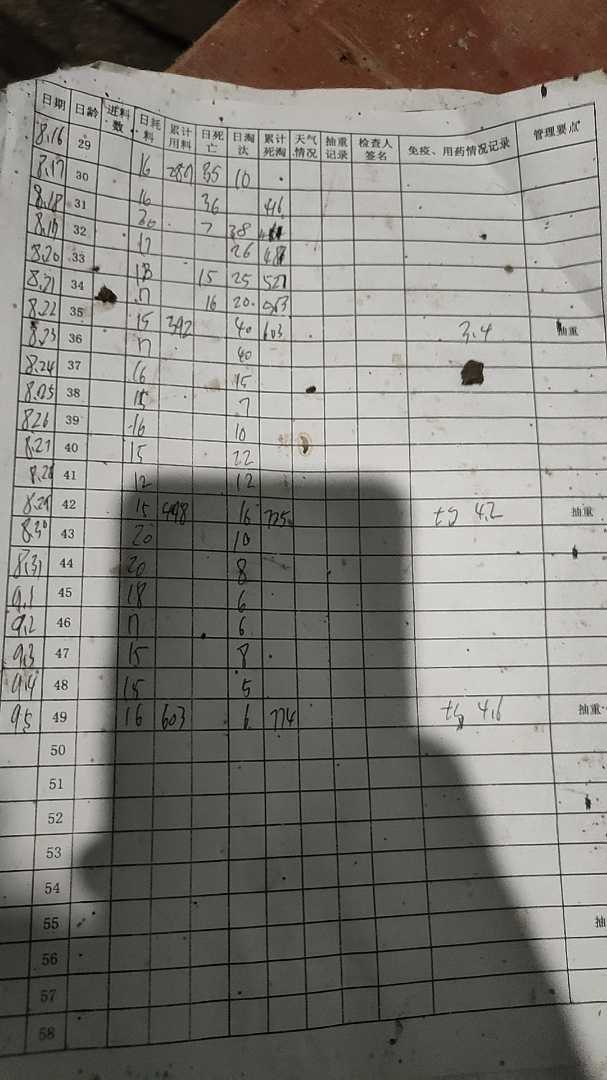 日期 日龄 进料数 日耗料 累计用料 日死亡 日淘汰 累计死淘 天气情况 抽重记录 检查人签名 免疫、用药情况记录 管理要点
8.16 29 16 280 35 10
8.17 30 16 36 416
8.18 31 20 7 38
8.19 32 17 26 487
8.20 33 18 15 25 527
8.21 34 17 16 20 563
8.22 35 15 392 40 603 3.4 抽重
8.23 36 17 40
8.24 37 16 15
8.25 38 15 7
8.26 39 16 10
8.27 40 15 22
8.28 41 12 12
8.29 42 15 498 16 725 4.2 抽重
8.30 43 20 10
8.31 44 20 8
9.1 45 18 6
9.2 46 17 6
9.3 47 15 8
9.4 48 15 5
9.5 49 16 603 6 774 4.6 抽重
50
51
52
53
54
55 抽
56
57
58